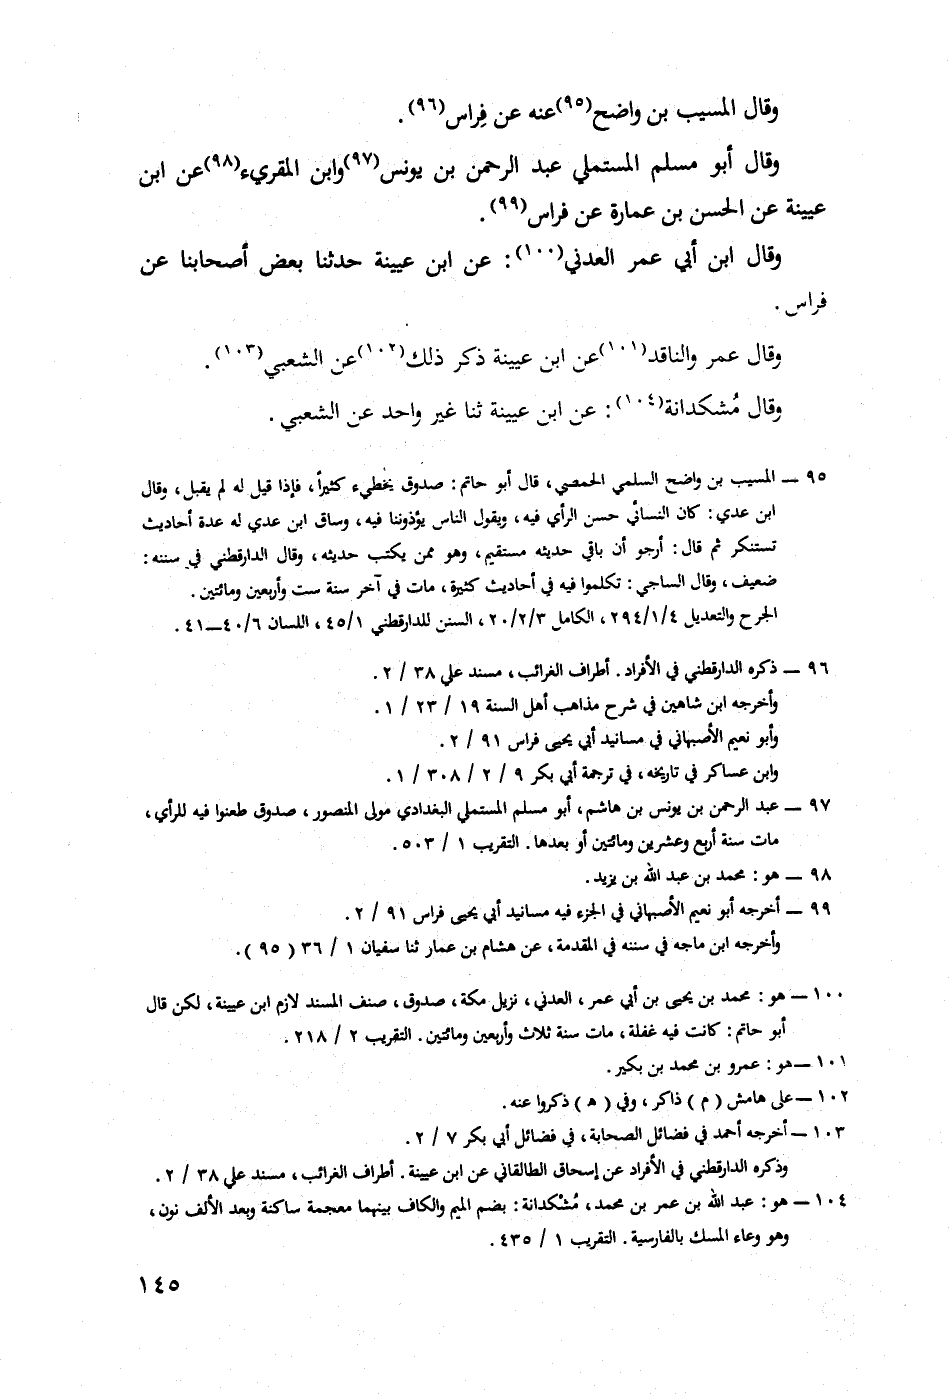 وقال المسيب بن واضح(٩٥)عنه عن فِراس(٩٦).
وقال أبو مسلم المستملي عبد الرحمن بن يونس(٩٧)وابن المقريء(٩٨)عن ابن
عيينة عن الحسن بن عمارة عن فراس(٩٩).
وقال ابن أبي عمر العدني(١٠٠): عن ابن عيينة حدثنا بعض أصحابنا عن
فراس.
وقال عمر والناقد(١٠١)عن ابن عيينة ذكر ذلك(١٠٢)عن الشعبي(١٠٣).
وقال مُشكدانة(١٠٤): عن ابن عيينة ثنا غير واحد عن الشعبي.
٩٥ ــ المسيب بن واضح السلمي الحمصي، قال أبو حاتم: صدوق يخطيء كثيراً، فإذا قيل له لم يقبل، وقال
ابن عدي: كان النسائي حسن الرأي فيه، ويقول الناس يؤذوننا فيه، وساق ابن عدي له عدة أحاديث
تستنكر ثم قال: أرجو أن باقي حديثه مستقيم، وهو ممن يكتب حديثه، وقال الدارقطني في سننه:
ضعيف، وقال الساجي: تكلموا فيه في أحاديث كثيرة، مات في آخر سنة ست وأربعين ومائتين.
الجرح والتعديل ٢٩٤/١/٤، الكامل ٢٠/٢/٣، السنن للدارقطني ٤٥/١، اللسان ٤٠/٦ــ٤١.
٩٦ ــ ذكره الدارقطني في الأفراد. أطراف الغرائب، مسند علي ٣٨ / ٢.
وأخرجه ابن شاهين في شرح مذاهب أهل السنة ١٩ / ٢٣ / ١.
وأبو نعيم الأصبهاني في مسانيد أبي يحيى فراس ٩١ / ٢.
وابن عساكر في تاريخه، في ترجمة أبي بكر ٩ / ٢ / ٣٠٨ / ١.
٩٧ ــ عبد الرحمن بن يونس بن هاشم، أبو مسلم المستملي البغدادي مولى المنصور، صدوق طعنوا فيه للرأي،
مات سنة أربع وعشرين ومائتين أو بعدها. التقريب ١ / ٥٠٣.
٩٨ ــ هو: محمد بن عبد الله بن يزيد.
٩٩ ــ أخرجه أبو نعيم الأصبهاني في الجزء فيه مسانيد أبي يحيى فراس ٩١ / ٢.
وأخرجه ابن ماجه في سننه في المقدمة، عن هشام بن عمار ثنا سفيان ١ / ٣٦ ( ٩٥ ).
١٠٠ ــ هو: محمد بن يحيى بن أبي عمر، العدني، نزيل مكة، صدوق، صنف المسند لازم ابن عيينة، لكن قال
أبو حاتم: كانت فيه غفلة، مات سنة ثلاث وأربعين ومائتين. التقريب ٢ / ٢١٨.
١٠١ ــ هو: عمرو بن محمد بن بكير.
١٠٢ ــ على هامش (م) ذاكر، وفي (ﻫ) ذكروا عنه.
١٠٣ ــ أخرجه أحمد في فضائل الصحابة، في فضائل أبي بكر ٧ / ٢.
وذكره الدارقطني في الأفراد عن إسحاق الطالقاني عن ابن عيينة. أطراف الغرائب، مسند علي ٣٨ / ٢.
١٠٤ ــ هو: عبد الله بن عمر بن محمد، مُشْكدانة: بضم الميم والكاف بينهما معجمة ساكنة وبعد الألف نون،
وهو وعاء المسك بالفارسية. التقريب ١ / ٤٣٥.
١٤٥